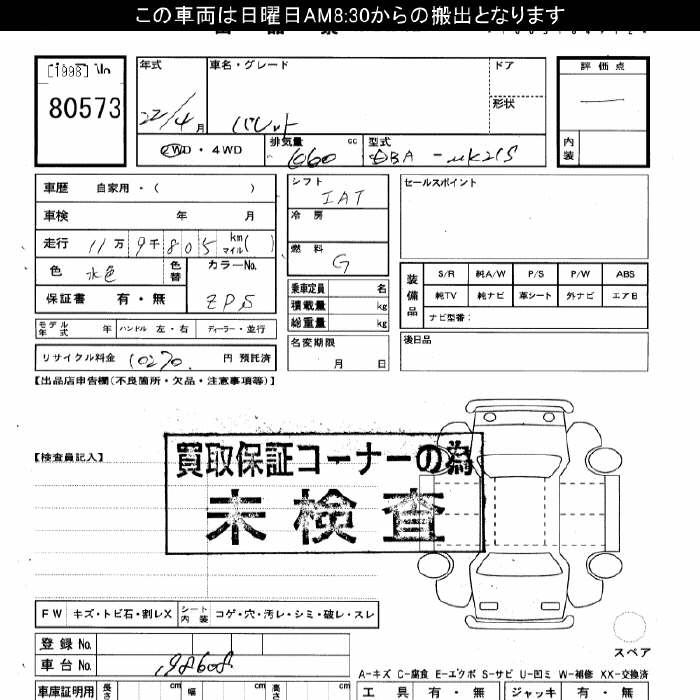 この車両は日曜日AM8:30からの搬出となります
[1998]
80573
年式 車名・グレード ドア
形状
22/4月 パレット
2WD・4WD 排気量 660 cc 型式 DBA-MK21S
評価点
内装
車歴 自家用・( )
車検 年 月
走行 11万9千805 km マイル( )
色 水色 色替 カラーNo. ZPS
保証書 有・無
モデル年式 年 ハンドル 左・右 ディーラー・並行
リサイクル料金 10270 円 預託済
シフト IAT
冷房
燃料 G
乗車定員 名
積載量 kg
総重量 kg
名変期限
月 日
セールスポイント
装備品 S/R 純A/W P/S P/W ABS
純TV 純ナビ 革シート 外ナビ エアB
ナビ型番:
後日品
【出品店申告欄(不良箇所・欠品・注意事項等)】
【検査員記入】
買取保証コーナーの為
未検査
FW キズ・トビ石・割レX シート内装 コゲ・穴・汚レ・シミ・破レ・スレ
登録No.
車台No. 198608
スペア
A-キズ C-腐食 E-エクボ S-サビ U-凹ミ W-補修 XX-交換済
車庫証明用 長さ cm 幅 cm 高さ cm
工具 有・無 ジャッキ 有・無